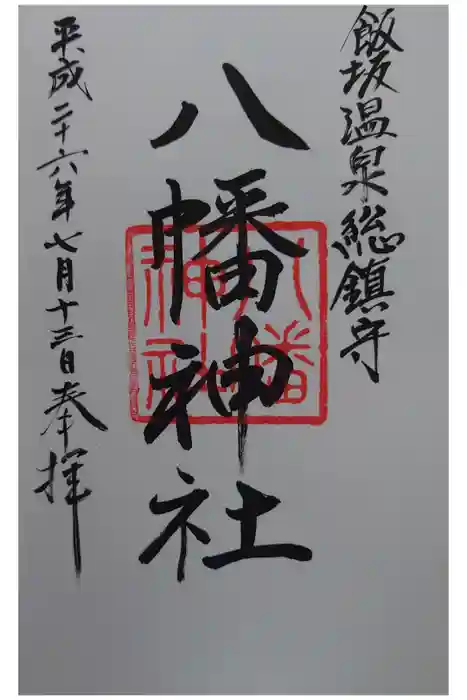 飯坂温泉総鎮守
八幡神社
八幡
神社
平成二十六年七月十三日奉拝